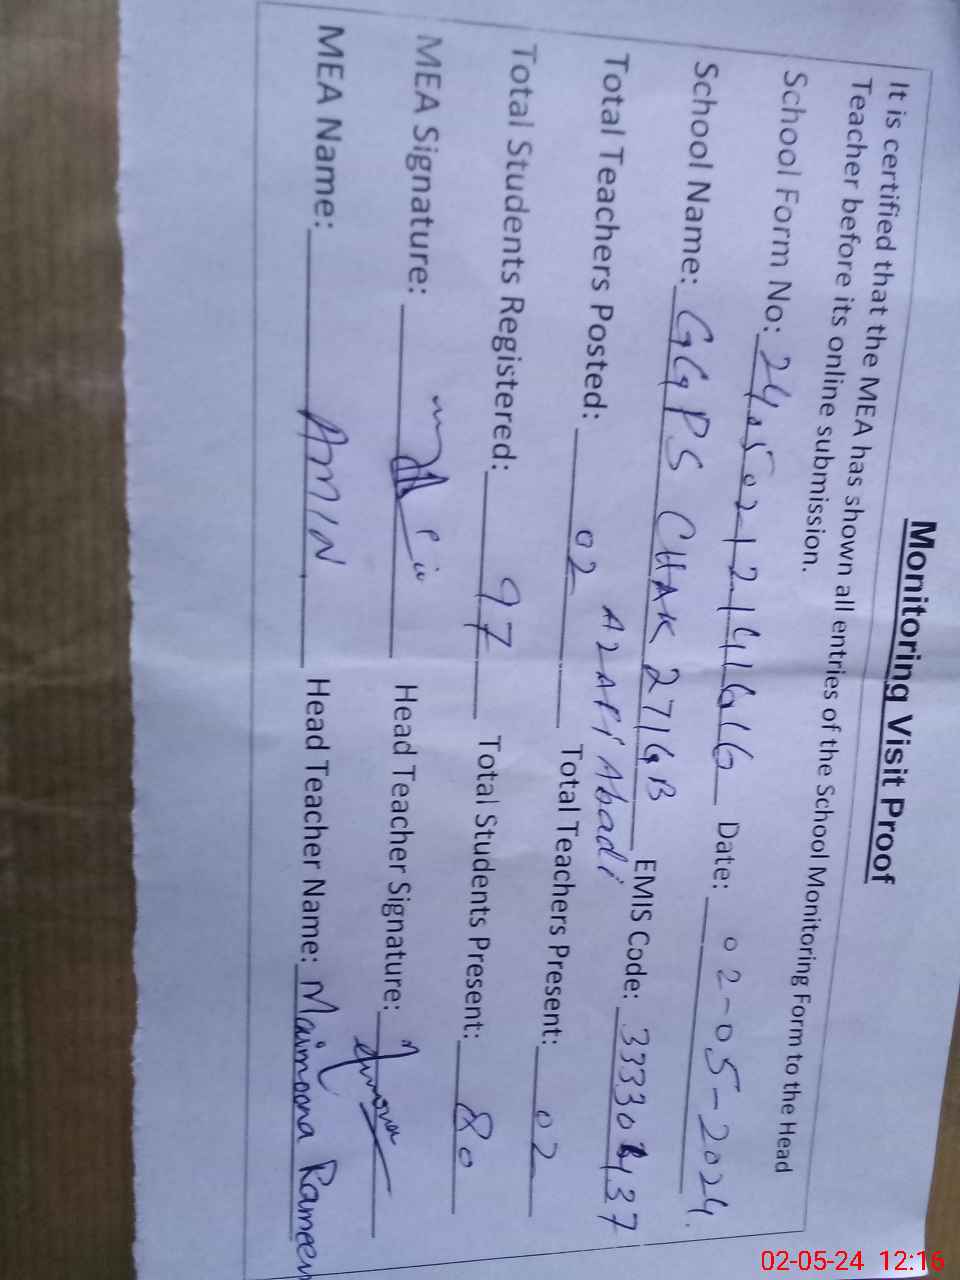 Monitoring Visit Proof
It is certified that the MEA has shown all entries of the School Monitoring Form to the Head
Teacher before its online submission.
School Form No: Date: 02-05-2024.
School Name: GGPS CHAK 271GB EMIS Code:
Abadi
Total Teachers Posted: 02 Total Teachers Present: 02
Total Students Registered: 97 Total Students Present: 80
MEA Signature: Head Teacher Signature:
MEA Name: AMIN Head Teacher Name: Maimoona Rameen
02-05-24 12:16